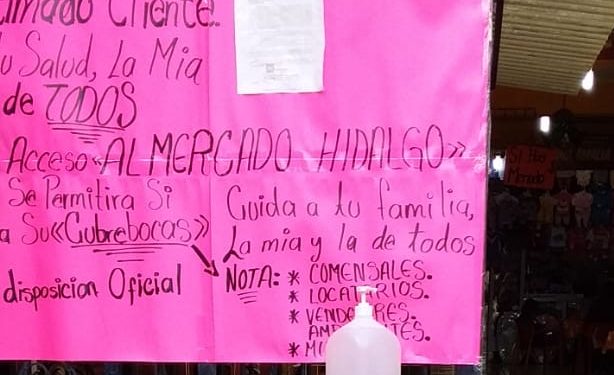 timado Cliente.
tu Salud, La Mia
de TODOS
Acceso «AL MERCADO HIDALGO»
Se Permitira Si
a Su «Cubrebocas»
disposicion Oficial
Cuida a tu familia,
La mia y la de todos
NOTA: * COMENSALES.
* LOCATARIOS.
*
*
SI Hay